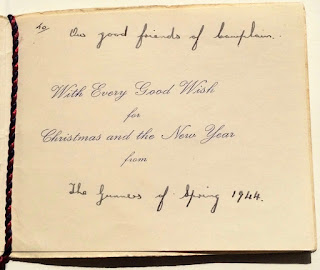 To
Our good friends of Camplain.
With Every Good Wish
for
Christmas and the New Year
from
The Gunners of Spring 1944.